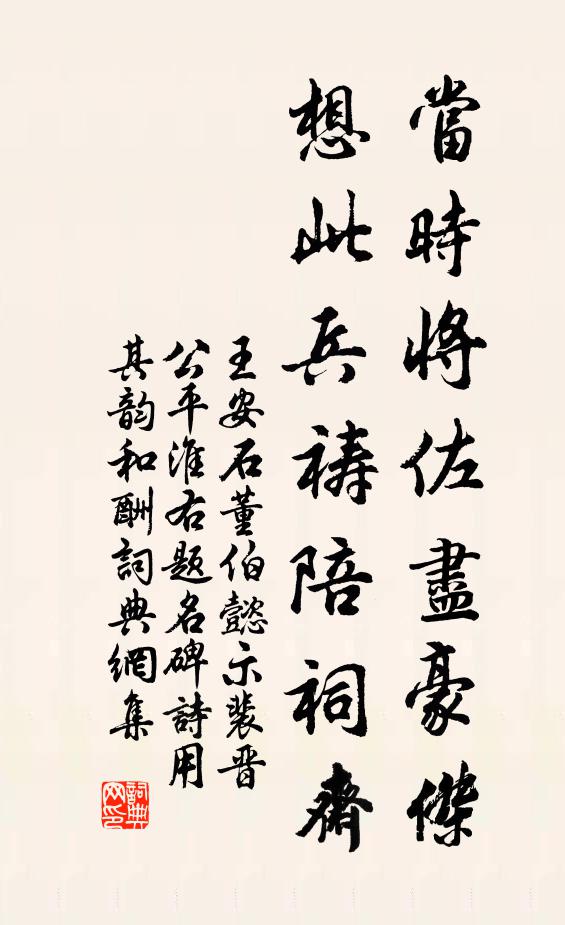 當時將佐盡豪傑
想此兵禱陪祠齋
王安石董伯懿示裴晋
公平淮右题名碑詩用
其韵和酬詞典網集
詞典网印